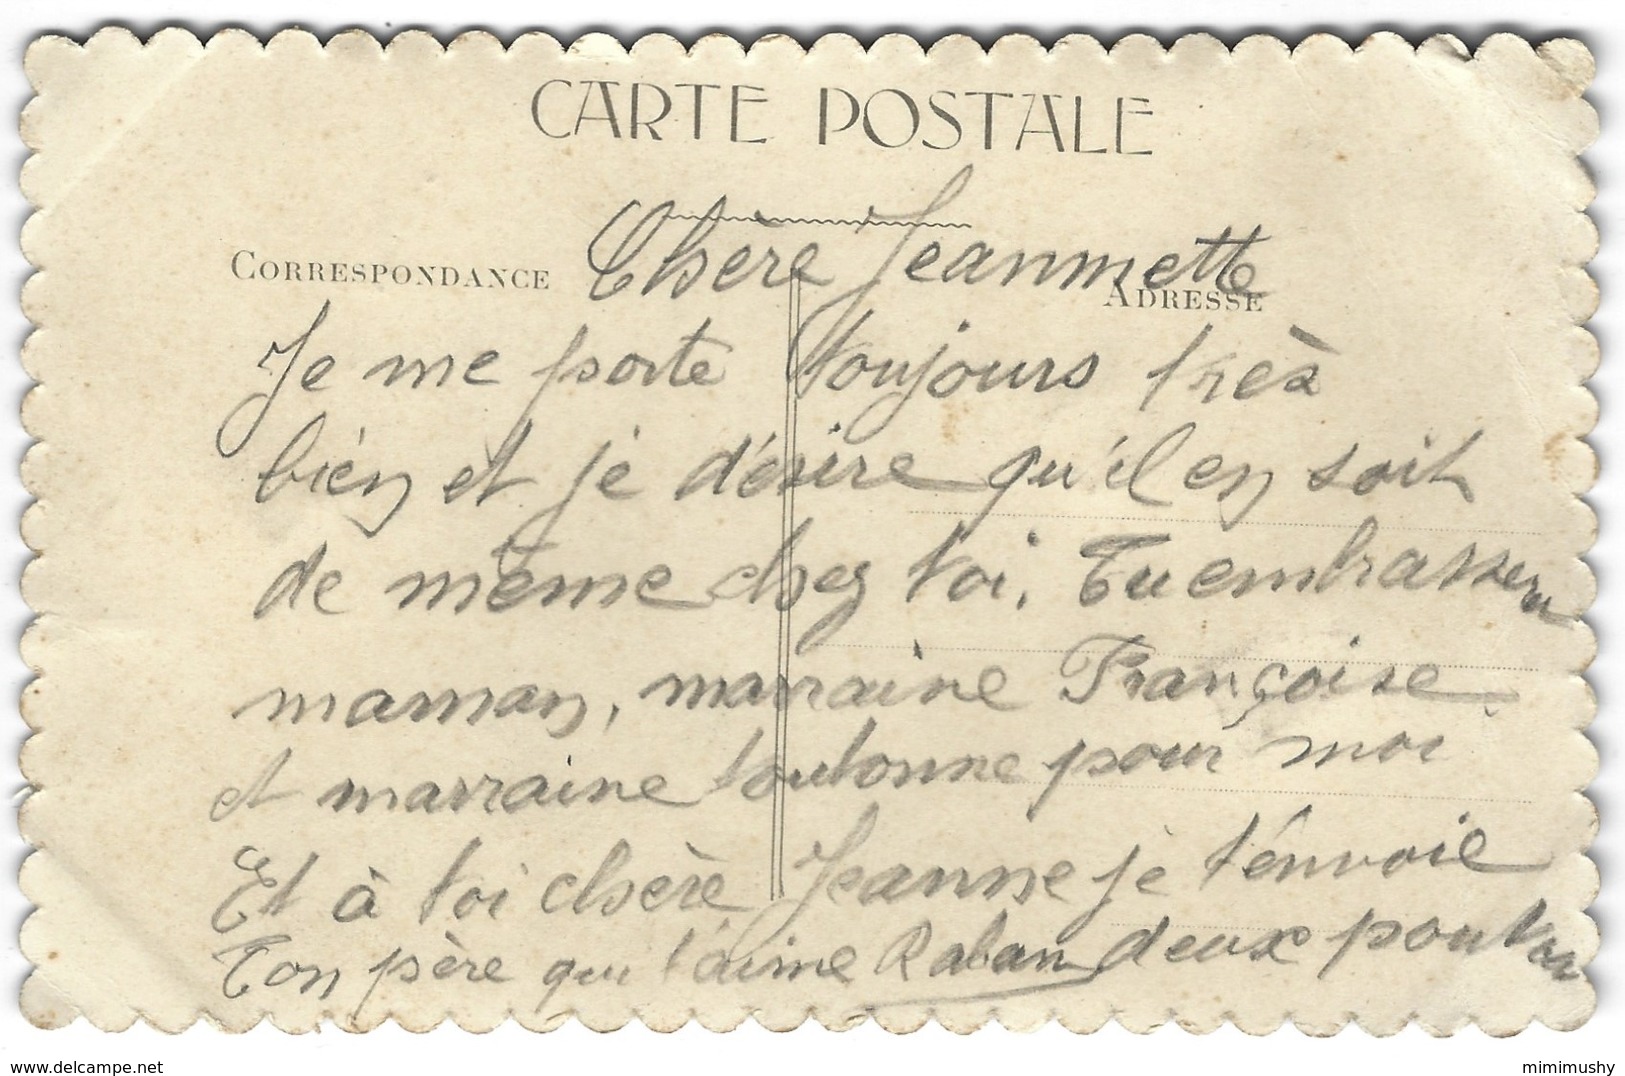 CARTE POSTALE
CORRESPONDANCE
ADRESSE
Chère Jeannette
Je me porte toujours très
bien et je désire qu'il en soit
de même chez toi. Tu embrassera
maman, marraine Françoise
et marraine toutonne pour moi
Et à toi chère Jeanne je t'envoie
Ton père qui t'aime Raban deux poutou
www.delcampe.net
mimimushy